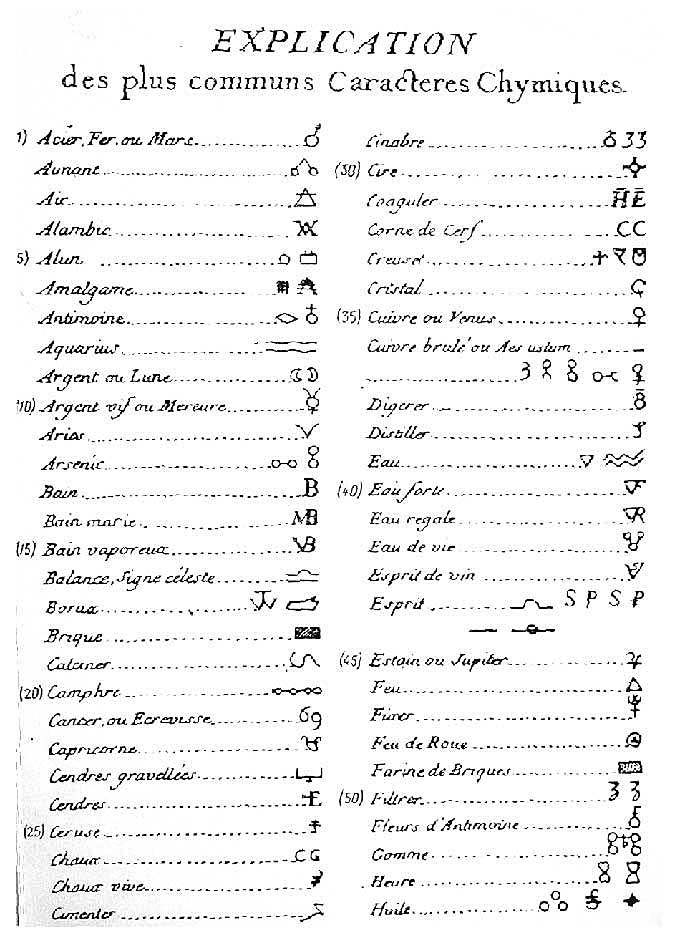 EXPLICATION
des plus communs Caracteres Chymiques.
1) Acier, Fer, ou Mars
Aunant
Air
Alambic
5) Alun
Amalgame
Antimoine
Aquarius
Argent ou Lune
(10) Argent vif ou Mercure
Aries
Arsenic
Bain
Bain marie
(15) Bain vaporeux
Balance, Signe céleste
Borax
Brique
Calciner
(20) Camphre
Cancer, ou Ecrevisse
Capricorne
Cendres gravellées
Cendres
(25) Ceruse
Chaux
Chaux vive
Cimenter
Cinabre
(30) Cire
Coaguler
Corne de Cerf
Creuset
Cristal
(35) Cuivre ou Venus
Cuivre brulé ou Aes ustum
Digerer
Distiller
Eau
(40) Eau forte
Eau regale
Eau de vie
Esprit de vin
Esprit S P S P
(45) Estain ou Jupiter
Feu
Fixer
Feu de Roue
Farine de Briques
(50) Filtrer
Fleurs d'Antimoine
Gomme
Heure
Huile